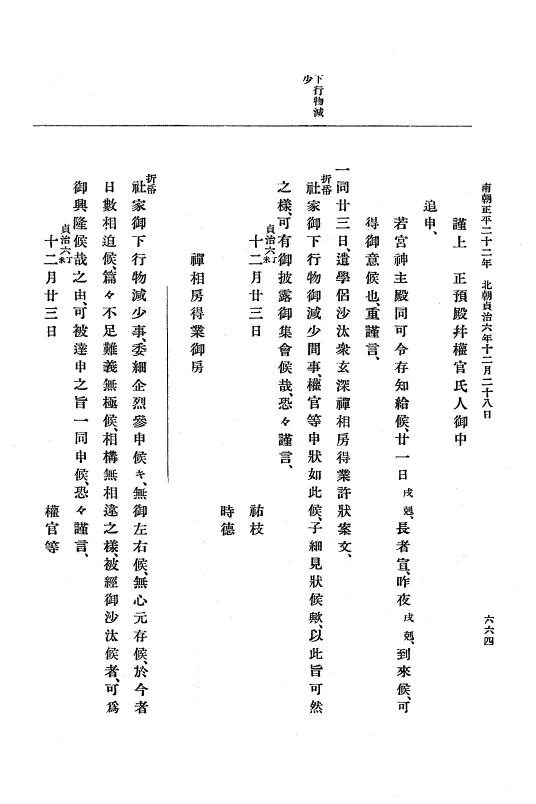 南朝正平二十二年 北朝貞治六年十二月二十八日
六六四
下行物減
少
謹上 正預殿幷權官氏人御中
追申、
若宮神主殿同可令存知給候、廿一日戌剋、長者宣、昨夜戌剋、到來候、可
得御意候也、重謹言、
一同廿三日、遣學侶沙汰衆玄深禪相房得業許狀案文、
折帋
社家御下行物御減少間事、權官等申狀如此候、子細見狀候歟、以此旨可然
之樣、可有御披露御集會候哉、恐々謹言、
貞治六丁未
十二月廿三日
祐枝
時德
禪相房得業御房
折帋
社家御下行物減少事、委細企烈參申候キ、無御左右候、無心元存候、於今者
日數相迫候、篇々不足難義無極候、相構無相違之樣、被經御沙汰候者、可爲
御興隆候哉之由、可被達申之旨一同申候、恐々謹言、
貞治六丁未
十二月廿三日
權官等